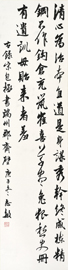 清心為治本直道是身謀秀幹終成棟精
鋼不作鈎倉充鼠雀喜草盡兔狐愁史冊
有遺訓毋貽來者羞
宋包拯書端州郡齋壁